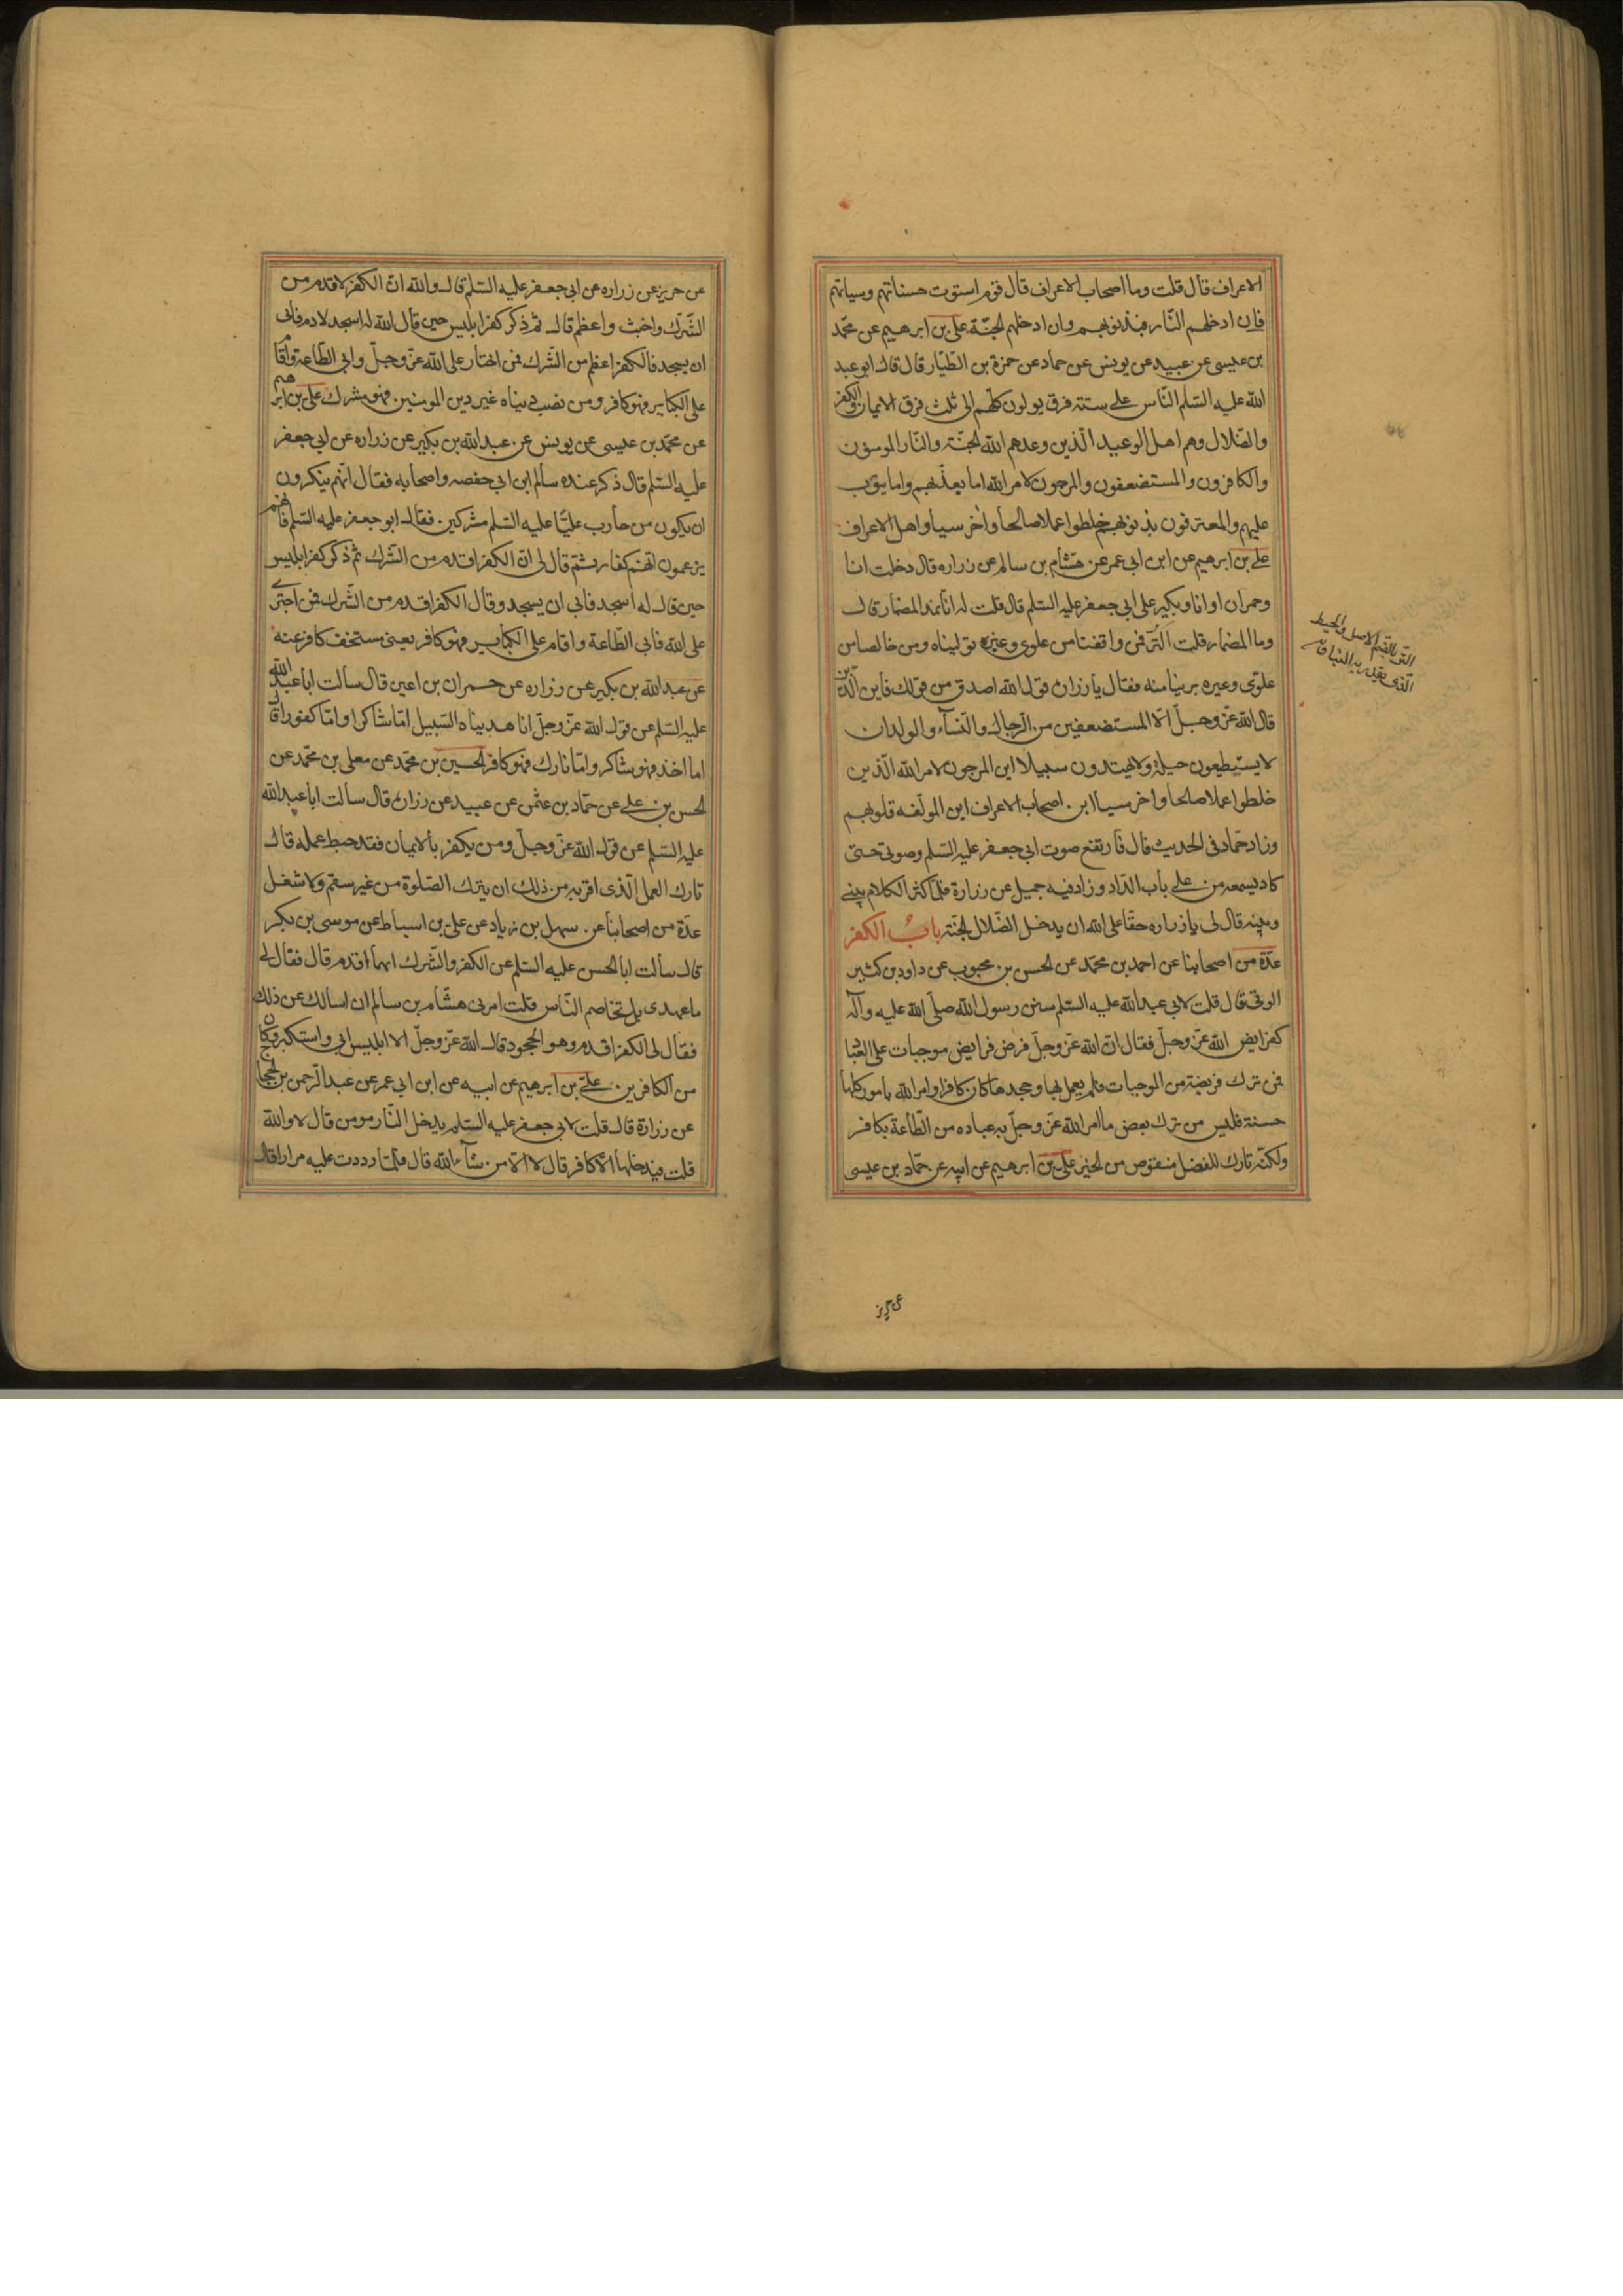 الاعراف قال قلت وما اصحاب الاعراف قال قوم استوت حسناتهم وسياتهم
فان ادخلهم النّار فبذنوبهم وان ادخلهم الجنّة علي بن ابرهيم عن محمّد
بن عيسى عن عبيد عن يونس عن حماد عن حمزة بن الطّيّار قال قال ابو عبد
الله عليه السّلم النّاس على ستة فرق يولون كلّهم الى ثلث فرق الايمان والكفر
والضّلال وهم اهل الوعيد الّذين وعدهم الله الجنّة والنّار المومنون
والكافرون والمستضعفون والمرجون لامر الله اما يعذّبهم واما يتوب
عليهم والمعترفون بذنوبهم خلطوا عملا صالحا وآخر سيا واهل الاعراف
علي بن ابرهيم عن ابن ابى عمر عن هشام بن سالم عن زراره قال دخلت انا
وحمران او انا وبكير على ابي جعفر عليه السّلم قال قلت له انا نمد المضمار قال
وما المضمار قلت التّر فمن وافقنا من علوى وغيره توليناه ومن خالفنا من
علوّى وغيره برينا منه فقال يا زراره قول الله اصدق من قولك فاين الّذين
قال الله عزّ وجلّ الّا المستضعفين من الرّجال والنّساء والولدان
لا يستطيعون حيلة ولا يهتدون سبيلا اين المرجون لامر الله الّذين
خلطوا عملا صالحا واخر سيا اين اصحاب الاعراف اين المولّفه قلوبهم
وزاد حمّاد فى الحديث قال فارتفع صوت ابي جعفر عليه السّلم وصوتى حتى
كاد يسمعه من على باب الدّار وزاد فيه جميل عن زرارة فلمّا كثر الكلام بينى
وبينه قال لى يا زراره حقّا على الله ان يدخل الضّلال الجنّة باب الكفر
عدّة من اصحابنا عن احمد بن محمّد عن الحسن بن محبوب عن داود بن كثير
الرقى قال قلت لابي عبد الله عليه السّلم سنن رسول الله صلّى الله عليه وآله
كفرايض الله عزّ وجلّ فقال انّ الله عزّ وجلّ فرض فرايض موجبات على العباد
فمن ترك فريضة من الموجبات فلم يعمل بها وجحدها كان كافرا وامر الله بامور كلها
حسنة فليس من ترك بعض ما امر الله عزّ وجلّ به عباده من الطّاعة بكافر
ولكنّه تارك للفضل منقوص من الخير علي بن ابرهيم عن ابيه عن حمّاد بن عيسى
التر بالضم الاصل والخيط
الّذى يقدّر به البناء
عن حريز
عن حريز عن زراره عن ابى جعفر عليه السّلم قال والله انّ الكفر لاقدم من
الشّرك واخبث واعظم قال ثم ذكر كفر ابليس حين قال الله له اسجد لادم فابى
ان يسجد فالكفر اعظم من الشّرك فمن اختار على الله عزّ وجلّ وابى الطّاعة واقام
على الكباير فهو كافر ومن نصب دينا غير دين المومنين فهو مشرك علي بن ابرهيم
عن محمّد بن عيسى عن يونس عن عبد الله بن بكير عن زراره عن ابي جعفر
عليه السّلم قال ذكر عنده سالم ابن ابي حفصه واصحابه فقال انّهم ينكرون
ان يكون من حارب عليّا عليه السّلم مشركين فقال ابو جعفر عليه السّلم فانهم
يزعمون انهم كفار ثم قال لى انّ الكفر اقدم من الشّرك ثم ذكر كفر ابليس
حين قال له اسجد فابى ان يسجد وقال الكفر اقدم من الشّرك فمن اجترى
على الله فابى الطّاعة واقام على الكباير فهو كافر يعنى مستخف كافر عنه
عن عبد الله بن بكير عن زراره عن حمران بن اعين قال سالت ابا عبد الله
عليه السّلم عن قول الله عزّ وجلّ انا هديناه السّبيل امّا شاكرا وامّا كفورا قال
اما اخذ فهو شاكر وامّا تارك فهو كافر الحسين بن محمّد عن معلى بن محمّد عن
الحسن بن على عن حمّاد بن عثمن عن عبيد عن زراره قال سالت ابا عبد الله
عليه السّلم عن قول الله عزّ وجلّ ومن يكفر بالايمان فقد حبط عمله قال
تارك العمل الّذى اقرّ به من ذلك ان يترك الصّلوة من غير سقم ولا شغل
عدّة من اصحابنا عن سهل بن زياد عن على بن اسباط عن موسى بن بكر
قال سالت ابا الحسن عليه السّلم عن الكفر والشّرك ايهما اقدم قال فقال لى
ما عهدى بك تخاصم النّاس قلت امرنى هشام بن سالم ان اسالك عن ذلك
فقال لى الكفر اقدم وهو الجحود قال الله عزّ وجلّ الا ابليس ابى واستكبر وكان
من الكافرين علي بن ابرهيم عن ابيه عن ابن ابي عمر عن عبد الرّحمن بن الحجاج
عن زرارة قال قلت لابي جعفر عليه السّلم يدخل النّار مومن قال لا والله
قلت فيدخلها الّا كافر قال لا الّا من شآء الله قال فلمّا رددت عليه مرارا قال